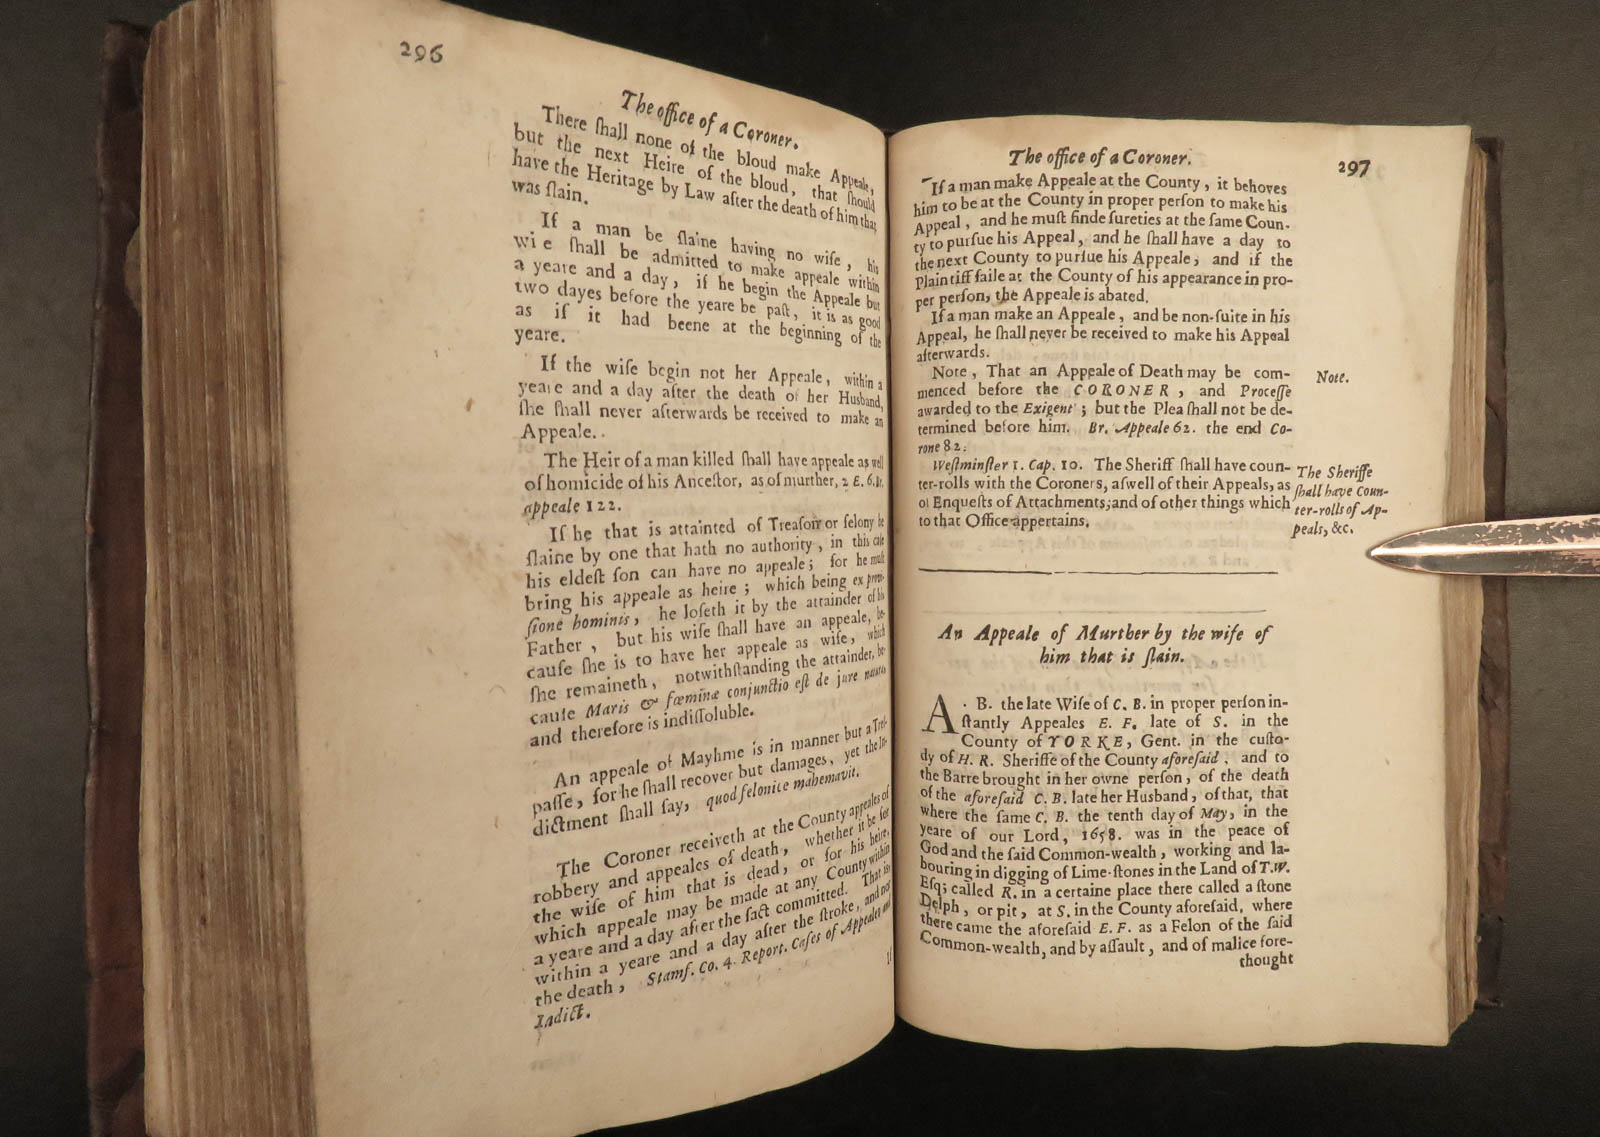 296
The office of a Coroner.
There ſhall none of the bloud make Appeale,
but the next Heire of the bloud, that ſhould
have the Heritage by Law after the death of him that
was ſlain.
If a man be ſlaine having no wife, his
wi e ſhall be admitted to make appeale within
a yeare and a day, if he begin the Appeale but
two dayes before the yeare be paſt, it is as good
as if it had beene at the beginning of the
yeare.
If the wife begin not her Appeale, within a
yeare and a day after the death of her Husband,
ſhe ſhall never afterwards be received to make an
Appeale.
The Heir of a man killed ſhall have appeale as well
of homicide of his Anceſtor, as of murther, 2 E. 6. Br.
appeale 122.
If he that is attainted of Treaſon or felony be
ſlaine by one that hath no authority, in this caſe
his eldeſt ſon can have no appeale; for he muſt
bring his appeale as heire; which being ex provi-
ſione hominis, he loſeth it by the attainder of his
Father, but his wife ſhall have an appeale, be-
cauſe ſhe is to have her appeale as wife, which
ſhe remaineth, notwithſtanding the attainder, be-
cauſe Maris & fœminæ conjunctio eſt de jure naturæ
and therefore is indiſſoluble.
An appeale of Mayhme is in manner but a Treſ-
paſſe, for he ſhall recover but damages, yet the In-
dictment ſhall ſay, quod felonice mahemavit.
The Coroner receiveth at the County appeales of
robbery and appeales of death, whether it be for
the wife of him that is dead, or for his heire,
which appeale may be made at any County within
a yeare and a day after the fact committed. That is
within a yeare and a day after the ſtroke, and not
the death, Stamf. Co. 4. Report. Caſes of Appeales and
Indict.
If
The office of a Coroner.
297
If a man make Appeale at the County, it behoves
him to be at the County in proper perſon to make his
Appeal, and he muſt finde ſureties at the ſame Coun-
ty to purſue his Appeal, and he ſhall have a day to
the next County to purſue his Appeale, and if the
Plaintiff faile at the County of his appearance in pro-
per perſon, the Appeale is abated.
If a man make an Appeale, and be non-ſuite in his
Appeal, he ſhall never be received to make his Appeal
afterwards.
Note, That an Appeale of Death may be com-
menced before the CORONER, and Proceſſe
awarded to the Exigent; but the Plea ſhall not be de-
termined before him. Br. Appeale 62. the end Co-
rone 82.
Note.
Weſtminſter 1. Cap. 10. The Sheriff ſhall have coun-
ter-rolls with the Coroners, aſwell of their Appeals, as
of Enqueſts of Attachments, and of other things which
to that Office appertains.
The Sheriffe
ſhall have Coun-
ter-rolls of Ap-
peals, &c.
An Appeale of Murther by the wife of
him that is ſlain.
A. B. the late Wife of C. B. in proper perſon in-
ſtantly Appeales E. F. late of S. in the
County of YORKE, Gent. in the cuſto-
dy of H. R. Sheriffe of the County aforeſaid, and to
the Barre brought in her owne perſon, of the death
of the aforeſaid C. B. late her Husband, of that, that
where the ſame C. B. the tenth day of May, in the
yeare of our Lord, 1658. was in the peace of
God and the ſaid Common-wealth, working and la-
bouring in digging of Lime-ſtones in the Land of T.W.
Eſq; called R. in a certaine place there called a ſtone
Delph, or pit, at S. in the County aforeſaid, where
there came the aforeſaid E. F. as a Felon of the ſaid
Common-wealth, and by aſſault, and of malice fore-
thought